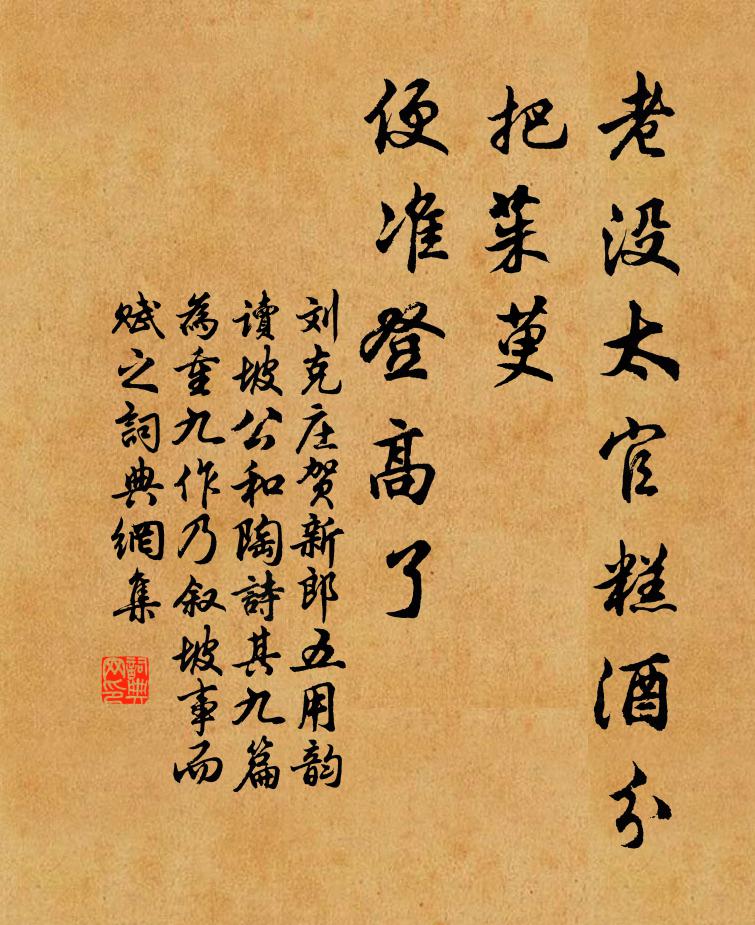 老没太官糕酒分
把茱萸
便准登高了
刘克庄贺新郎五用韵
讀坡公和陶詩其九篇
為重九作乃叙坡事而
赋之詞典網集
詞典網印